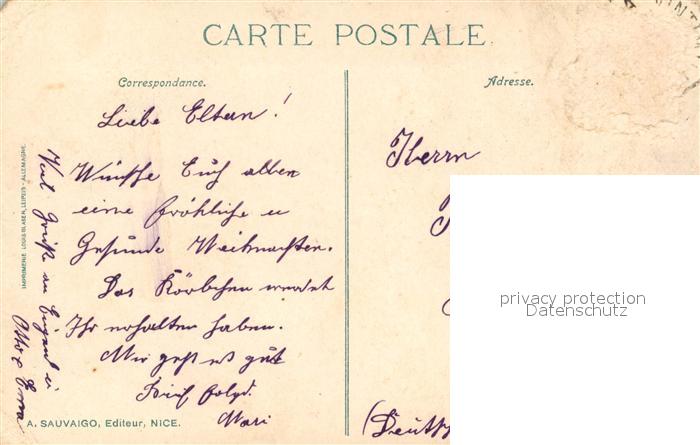 CARTE POSTALE.
Correspondance.
Liebe Eltern!
Wünsche Euch allen
eine fröhliche u
Gesunde Weihnachten.
Das Körbchen werdet
Ihr erhalten haben.
Mir geht es gut
Brief folgt.
Mari
Viel Grüße an Eugen u
Otto & Erna
IMPRIMERIE LOUIS GLASER, LEIPZIG - ALLEMAGNE.
A. SAUVAIGO, Editeur, NICE.
Adresse.
Herrn
(Deutsch
privacy protection
Datenschutz